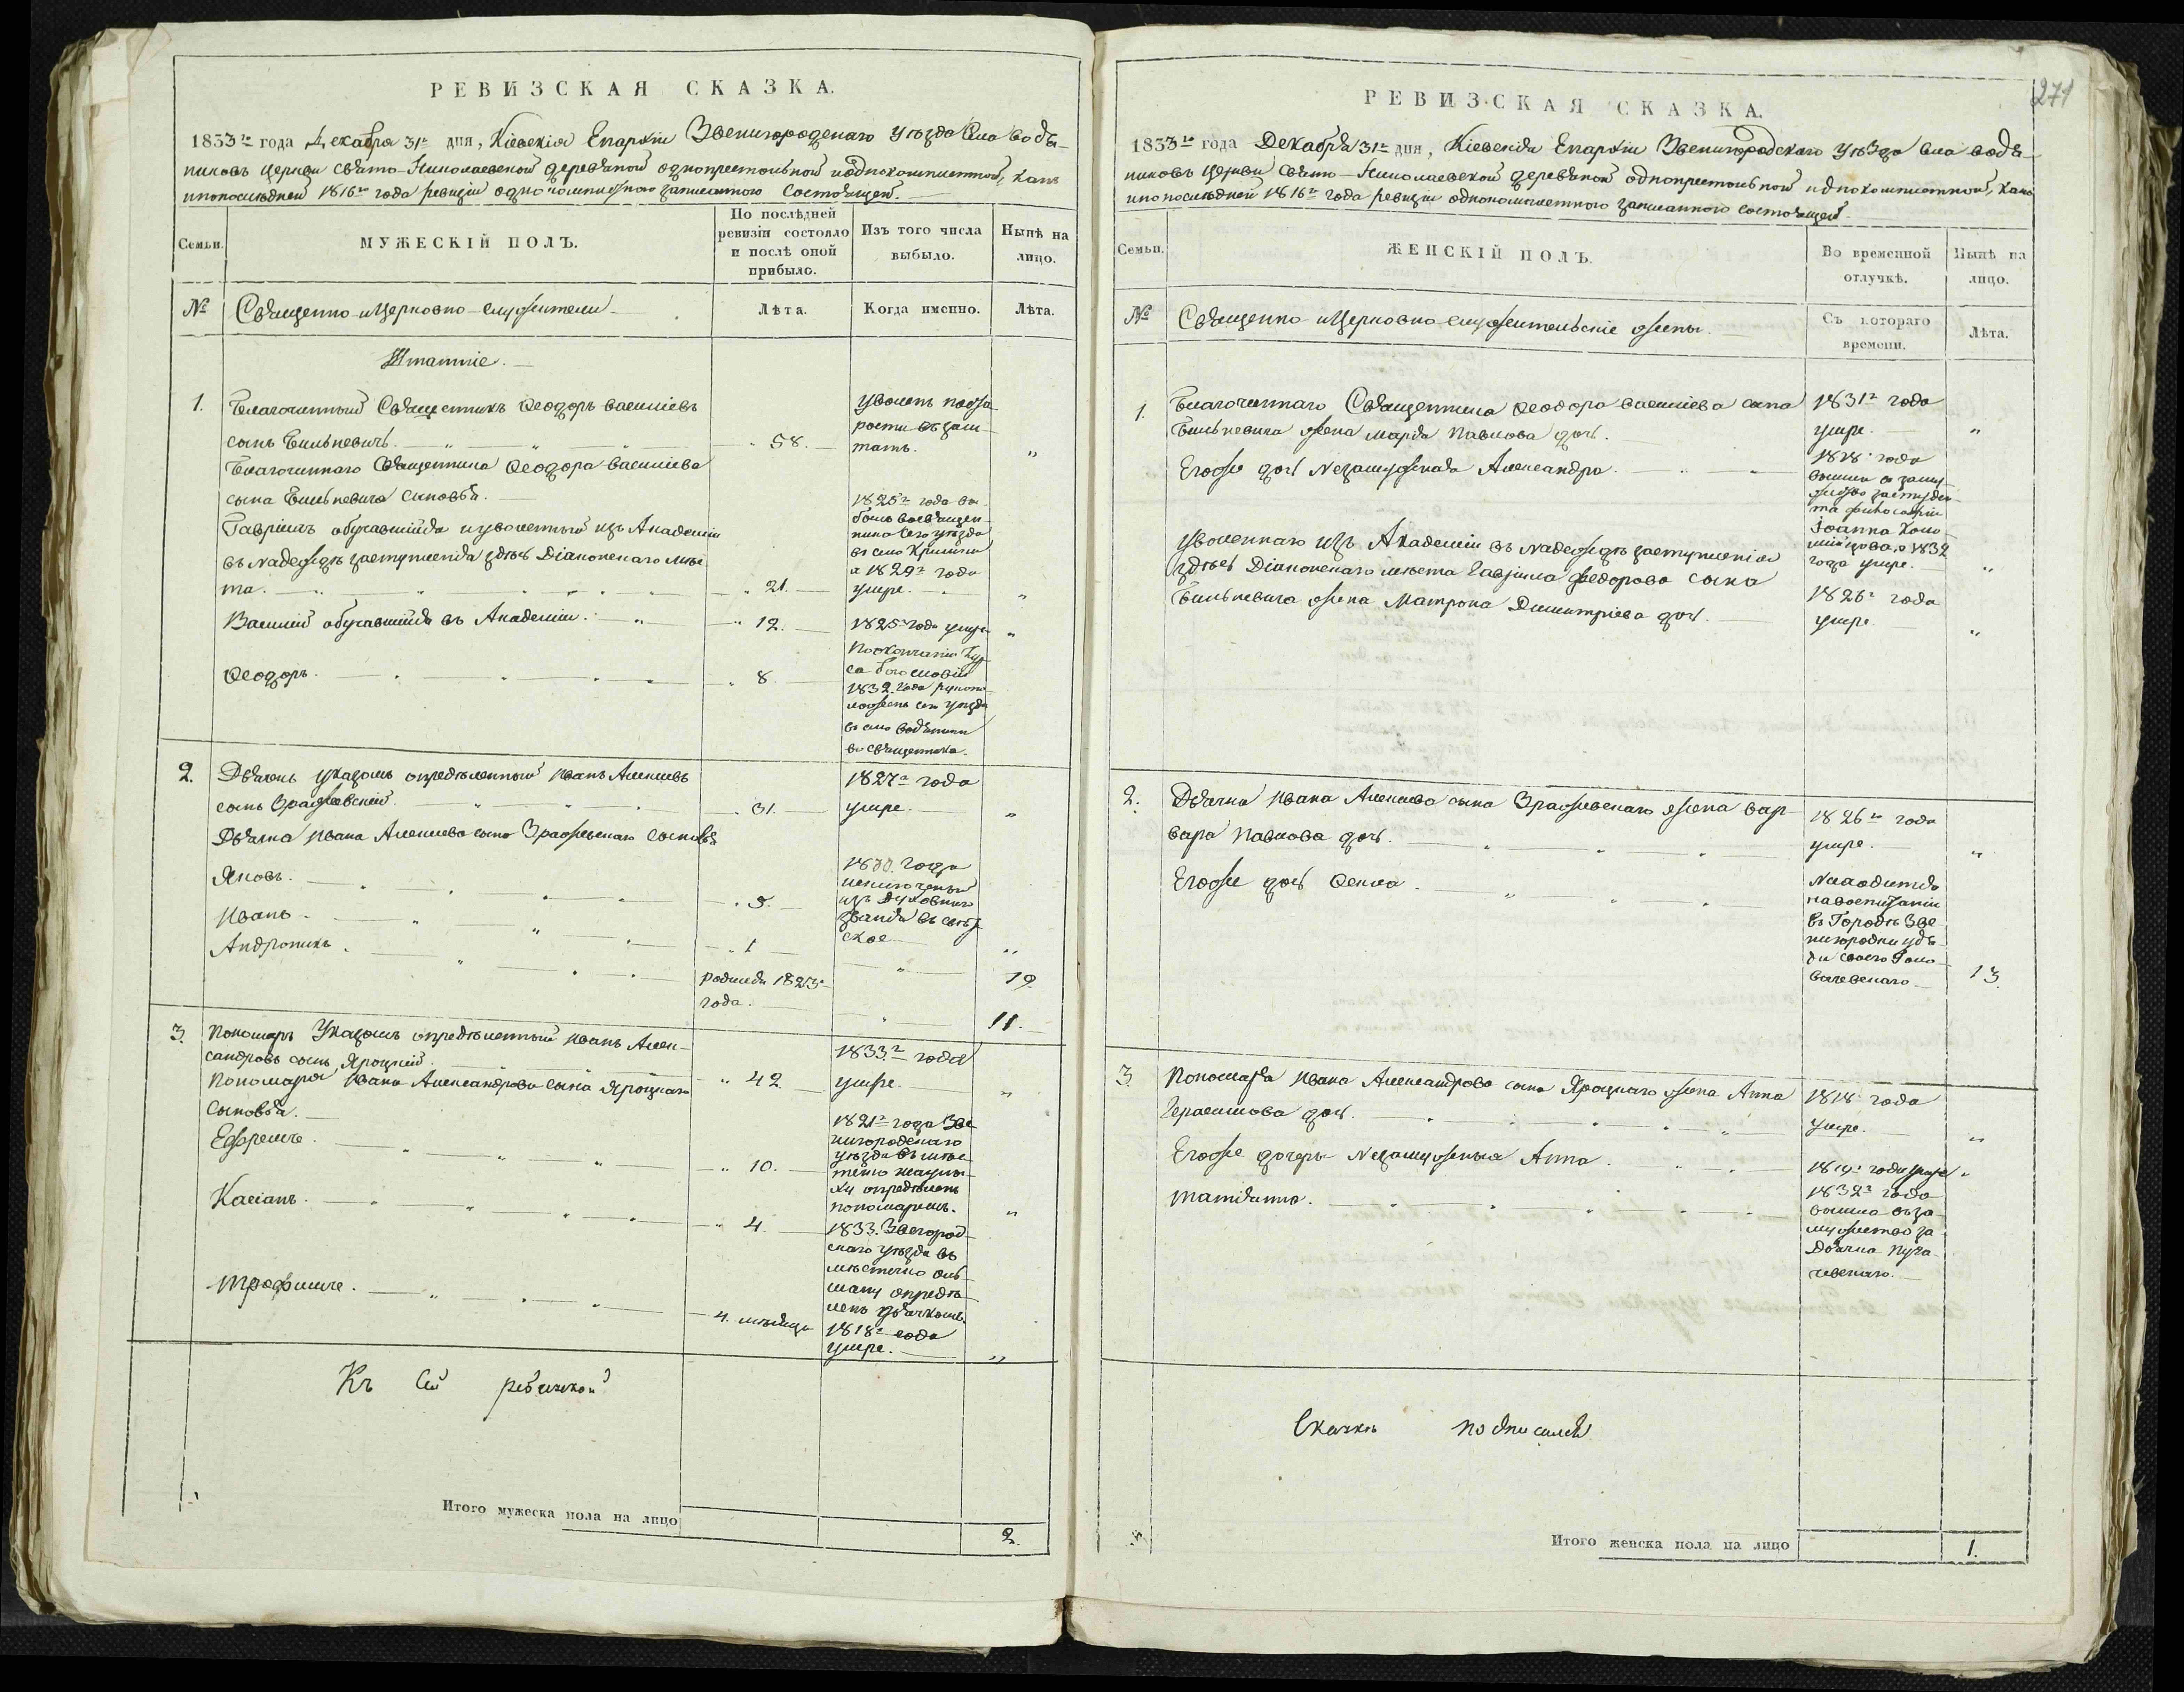 РЕВИЗСКАЯ СКАЗКА.
1833го года Декабря 31го дня, Кіевскія Епархіи Звенигородскаго уѣзда села Водя-
никовъ церкви Свято-Николаевской деревяной однопрестольной и однокомплетной, какъ
и по послѣдней 1816го года ревизіи однокомплетного записанного состоящей.
Семьи.
МУЖЕСКІЙ ПОЛЪ.
По послѣдней
ревизіи состояло
и послѣ оной
прибыло.
Изъ того числа
выбыло.
Нынѣ на
лицо.
№
Священно-и Церковно-служители
Лѣта.
Когда именно.
Лѣта.
Штатніе.
1. Благочинный Священникъ Феодоръ Васильевъ
сынъ Билькевичъ. 58.
уволенъ по ста-
рости въ заш-
татъ. „
Благочинного Священника Феодора Васильева
сына Билькевича сыновья.
Гавріилъ обучавшійся и уволенный изъ Академіи
въ надеждѣ заступленія здѣсь Діаконскаго мѣс-
та. 21.
1825го года вы-
былъ во священ-
ника сего уѣзда
въ село
а 1829го года
умре. „
Василій обучавшійся въ Академіи. 12. 1825 года умре „
Феодоръ. 8.
По окончаніи кур-
са богословіи
1832 года рукопо-
ложенъ сего уѣзда
въ село Водяники
во священника.
2. Дьячекъ указомъ опредѣленный Иванъ Алексѣевъ
сынъ Зражевскій. 31.
1827го года
умре. „
Дьячка Ивана Алексѣева сына Зражевскаго сыновья
Яковъ. 5.
1830. года
исключеный
изъ Духовного
званія въ свѣт-
ское „
Иванъ. 1 „ 19.
Андроникъ. родился 1823
года. „ 11.
3. Пономарь Указомъ опредѣленный Иванъ Алек-
сандровъ сынъ Яроцкій 42.
1833го года
умре. „
Пономаря Ивана Александрова сына Яроцкаго
сыновья.
Ефремъ. 10.
1821го года Зве-
нигородскаго
уѣзда въ мѣс-
течко
опредѣленъ
пономаремъ. „
Касіанъ. 4.
1833. Звегород-
скаго уѣзда въ
мѣстечко Оль-
шану опредѣ-
ленъ дьячкомъ.
Трофимъ. 4. мѣсяца
1818го года
умре. „
Къ сей ревизской
Итого мужеска пола на лицо 2.
271
РЕВИЗСКАЯ СКАЗКА.
1833го года Декабря 31го дня, Кіевскія Епархіи Звенигородскаго уѣзда села Водя-
никовъ церкви Свято-Николаевской деревяной однопрестольной и однокомплетной, какъ
и по послѣдней 1816го года ревизіи однокомплетного записанного состоящей.
Семьи.
ЖЕНСКІЙ ПОЛЪ.
Во временной
отлучкѣ.
Нынѣ на
лицо.
№
Священно и Церковно-служительскіе жены.
Съ котораго
времени.
Лѣта.
1. Благочинного Священника Феодора Васильева сына
Билькевича жена Марѳа Павлова дочь.
1831го года
умре. „
Егоже дочь Незамужная Александра.
1828 года
вышла в заму-
жество за студен-
та философіи
Іоанна
а 1832
года умре. „
Уволеннаго изъ Академіи въ надеждѣ заступленія
здѣсь Діаконскаго мѣста Гавріила Федорова сына
Билькевича жена Матрона Димитріева дочь.
1826го года
умре „
2. Дьячка Ивана Алексѣева сына Зражевскаго жена Вар-
вара Павлова дочь.
1826го года
умре. „
Егоже дочь Фекла.
Находится
на воспитаніи
въ Городѣ Зве-
нигородки у дя-
ди своего
13.
3. Пономаря Ивана Александрова сына Яроцкаго жена Анна
Герасимова дочь.
1818 года
умре. „
Егоже дочери Незамужныя Анна. 1819 года умре „
Татіанна.
1832го года
вышла въ за-
мужество за
Дьячка

Сказкѣ подписался
Итого женска пола на лицо 1.